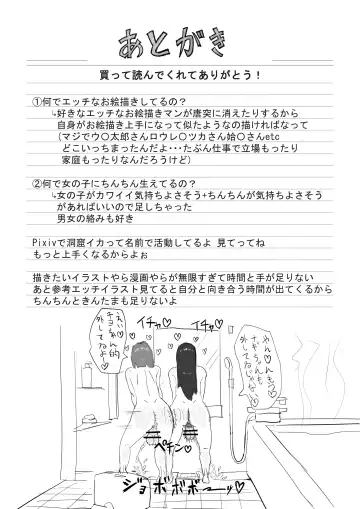 あとがき
買って読んでくれてありがとう！
①何でエッチなお絵描きしてるの？
↳好きなエッチなお絵描きマンが唐突に消えたりするから
自身がお絵描き上手になって似たようなの描ければなって
(マジでウ○太郎さんロウレ○ツカさん姶○さんetc
どこいっちまったんだよ・・たぶん仕事で立場もったり
家庭もったりなんだろうけど)
②何で女の子にちんちん生えてるの？
↳女の子がカワイイ気持ちよさそう+ちんちんが気持ちよさそう
があればいいので足しちゃった
男女の絡みも好き
Pixivで洞窟イカって名前で活動してるよ 見てってね
もっと上手くなるからよぉ
描きたいイラストやら漫画やらが無限すぎて時間と手が足りない
あと参考エッチイラスト見てると自分と向き合う時間が出てくるから
ちんちんときんたまも足りないよ
イチャ♡
イチャ♡
外してるよ♡
外してるじゃん♡
ペチン♡
ジョボボボーーッ♡